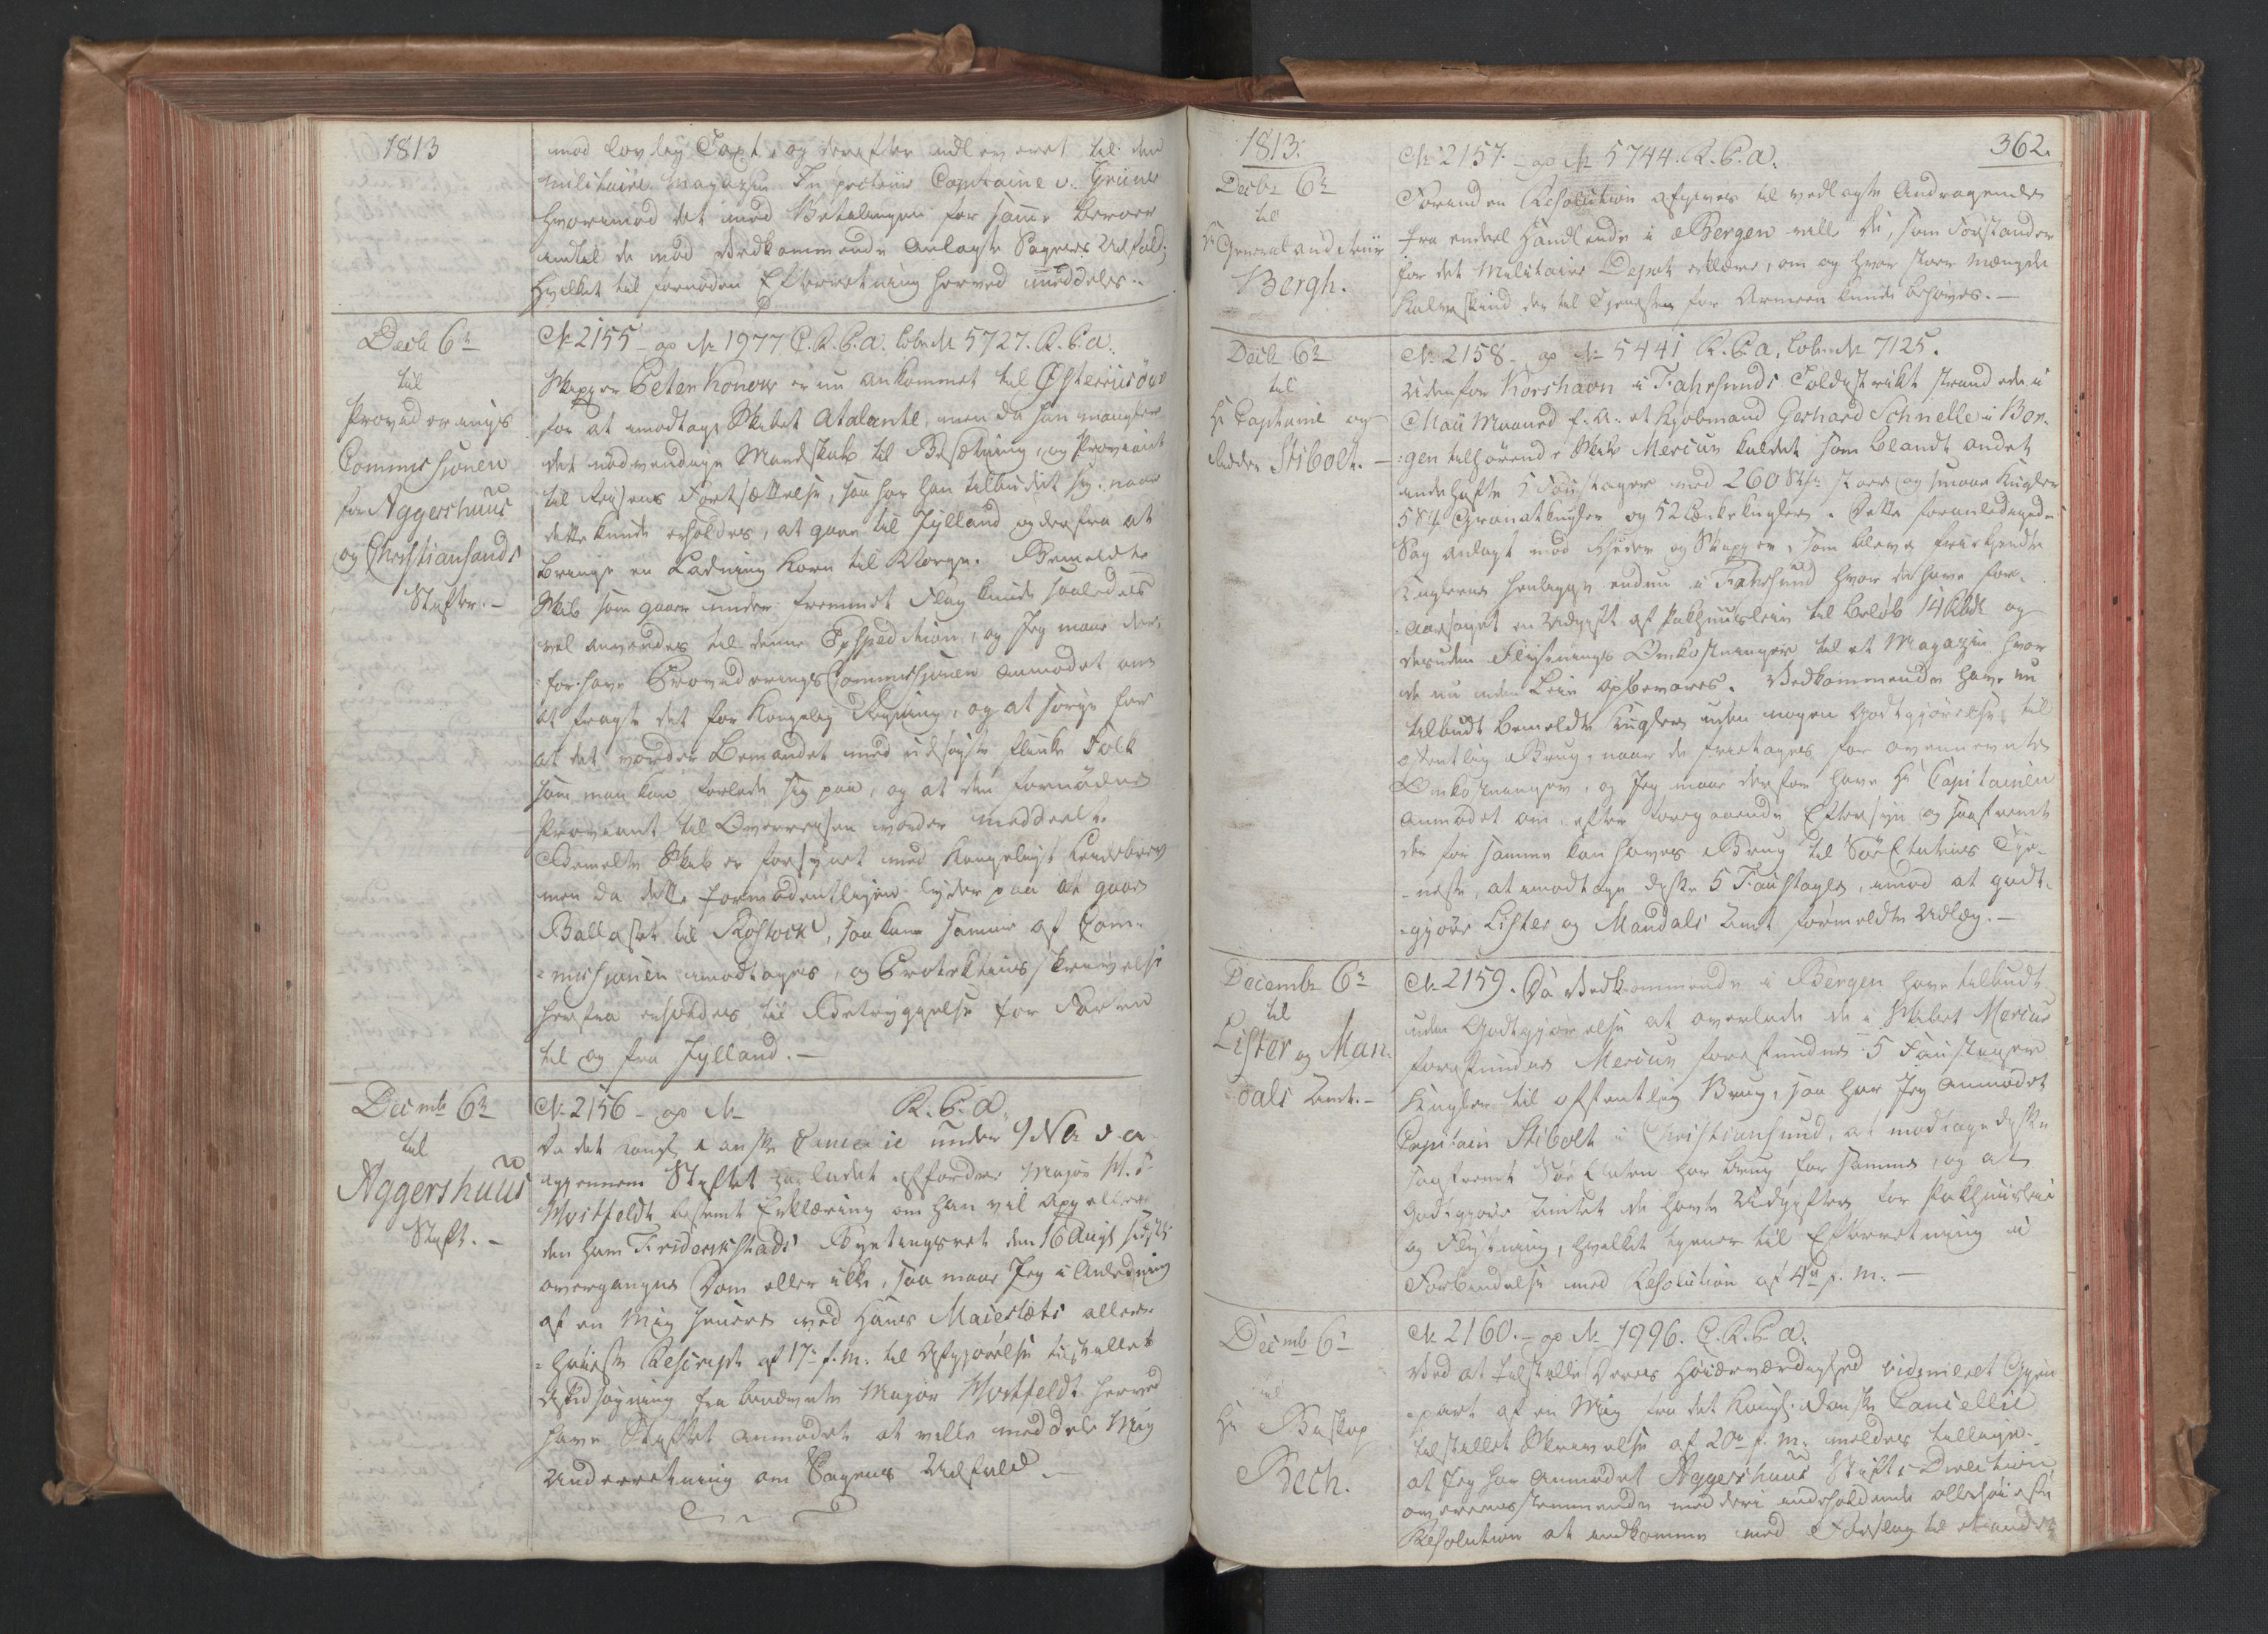 1813
mod lovlig Taxt, og derefter udleveret til den
militaire Magazin Inspecteur Capitaine v. Grüner
hvorimod det med Betalingen for samme beroer
indtil de mod Vedkommende anlagte Sagers Udfald;
hvilket til fornöden Efterretning herved meddeles.
Decb 6te
til
Provideerings
Commissionen
for Aggershuus
og Christiansands
Stifter.-
No 2155 - ap No 1977 C.R.C.a. lob. No 5727. R.C.a.
Skipper Peter Konow er nu ankommet til Østerriisöer
for at imodtage Skibet Atalante, men da han mangler
det nödvendige Mandskab til Besætning, og Proviant
til Reisens Fortsættelse, saa har han tilbudet sig, naar
dette kunde erholdes, at gaae til Jylland og derfra at
bringe en Ladning Korn til Norge. Bemeldte
Skib som gaaer under fremmet Flag kunde saaledes
vel anvendes til denne Expedition, og Jeg maae der-
for have Provideerings Commissionen anmodet om
at fragte det for Kongelig Regning, og at sörge for
at det vorder bemandet med udsögte flinke Folk
som man kan forlade sig paa, og at den fornödne
Proviant til Overreisen vorder meddeelt.
Bemeldte Skib er forsynet med Kongeligt Leidebrev
men da dette formodentligen lyder paa at gaae
Ballastet til Rostock, saa kan samme af Com-
missionen imodtages, og Protections skrivelse
herfra erholdes til Betryggelse for Farten
til og fra Jylland.-
Decmb 6te
til
Aggershuus
Stift.-
No 2156 - ap No R.C.a.
Da det kongl danske Cancelie under 9 Nov. d. a.
igjennem Stiftet har ladet affordre Major W. F.
Mostfeldt bestemt Erklæring om han vil appellere
den ham Friderikstads Byetingsret den 16 Augt sidstl.
overgangne Dom eller ikke, saa maae Jeg i Anledning
af en Mig senere ved Hans Maiestæts aller-
höieste Rescript af 17de f. M. til Afgjörelse tilstillet
Ansögning fra benævnte Major Mostfeldt herved
have Stiftet anmodet at ville meddele Mig
Underretning om Sagens Udfald.
1813.
362.
Decbr 6te
til
Hr Generalauditeur
Bergh.
No 2157. - ap No 5744. R.C.a.
Forinden Resolution afgives til vedlagte Andragende
fra endeel Handlende i Bergen ville De, som Forstander
for det Militaire Depot erklære, om og hvor stoer Mængde
Kalveskind der til Tjenesten for Armeen kunde behöves.-
Decbr 6te
til
Hr Captaine og
Ridder Stibolt.-
No 2158 - ap No 5441 R.C.a, lob. No 7125.
Udenfor Korshavn i Fahrsunds Tolddistrikt strandede i
Maii Maaned f. A. et Kjöbmand Gerhard Schnelle i Ber-
gen tilhörende Skib Mercur kaldet som blandt andet
indeholdte 5 Faustager med 260 store og smaae Kugler
584 Granatkugler og 52 Lænkekugler. Dette foranledigede
Sag anlagt mod Rheder og Skipper, som bleve frikjendte
Kuglerne henligger endnu i Fahrsund hvor de have for-
aarsaget en Udgift af Pakhuusleie til Beløb 14 Rbd og
desuden Flytnings Omkostninger til et Magazin hvor
de nu uden Leie opbevares. Vedkommende have nu
tilbudt bemeldte Kugler uden nogen Godtgjörelse til
offentlig Brug, naar de fritages for ovennevnte
Omkostninger, og Jeg maae derfor have Hr Capitainen
anmodet om, efter foregaaende Eftersyn og saafremt
der for samme kan haves Brug til Söe Etatens Tje-
neste, at imodtage disse 5 Faustager, imod at godt-
gjöre Lister og Mandals Amt formeldte Udlæg.-
Decembr 6te
til
Lister og Man-
dals Amt.-
No 2159. Da Vedkommende i Bergen have tilbudt
uden Godtgjörelse at overlade de i Skibet Mercur
forefundne Mercur forefundne 5 Faustager
Kugler til offentlig Brug, saa har Jeg anmodet
Capitain Stibolt i Christiansund, at modtage disse
saafremt Söe Etaten har Brug for samme, og at
godtgjöre Amtet de havte Udgifter for Pakhuusleie
og Flytning, hvilket tjener til Efterretning i
Forbindelse med Resolution af 4de f. M.-
Decmb 6te
til
Hr Biskop
Bech.
No 2160. - ap No 1996. C.R.C.a.
Ved at tilstille Deres Höiærværdighed vidimeret Gjen-
part af en Mig fra det Kongl. danske Cancellie
tilstillet Skrivelse af 20de f. M. meldes tillige
at Jeg har anmodet Aggershuus Stifts Direction
overeensstemmende med deri indeholdende allerhöieste
Resolution at indkomme med Forslag til et andet